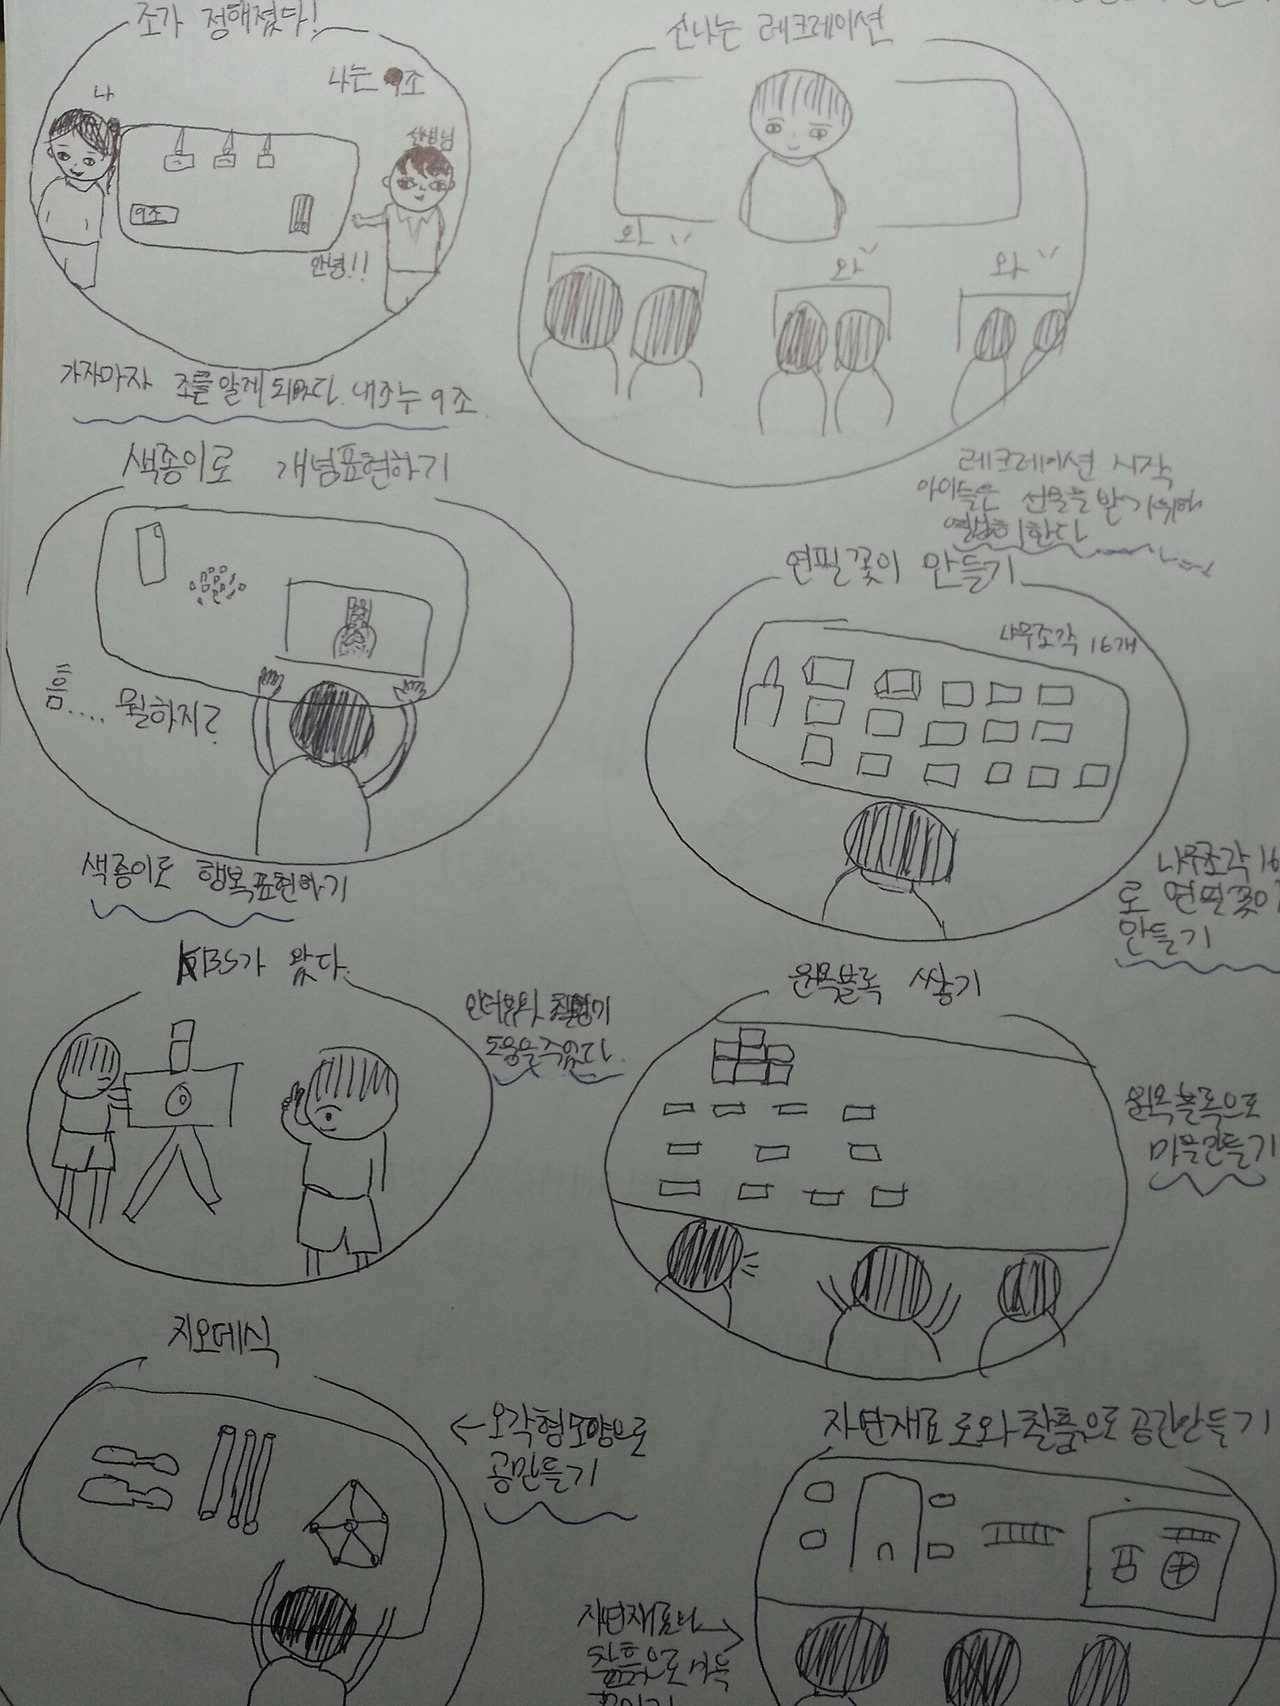 조가 정해졌다!
나는 9조
나
선생님
9조
안녕!!
가자마자 조를 알게 되었다. 내조는 9조
신나는 레크레이션
와
와
와
레크레이션 시작
아이들은 선물을 받기위해
열심히한다
색종이로 개념표현하기
흠.... 뭘하지?
색종이로 행복표현하기
연필꽂이 만들기
나무조각 16개
나무조각 16
로 연필꽂이
만들기
KBS가 왔다.
인터뷰와 촬영이
도움을주었다.
원목블록 쌓기
원목블록으로
마을만들기
지오데식
←오각형모양으로
공만들기
자연재료 로와 찰흙으로 공간만들기
자연재료나
찰흙으로 마을